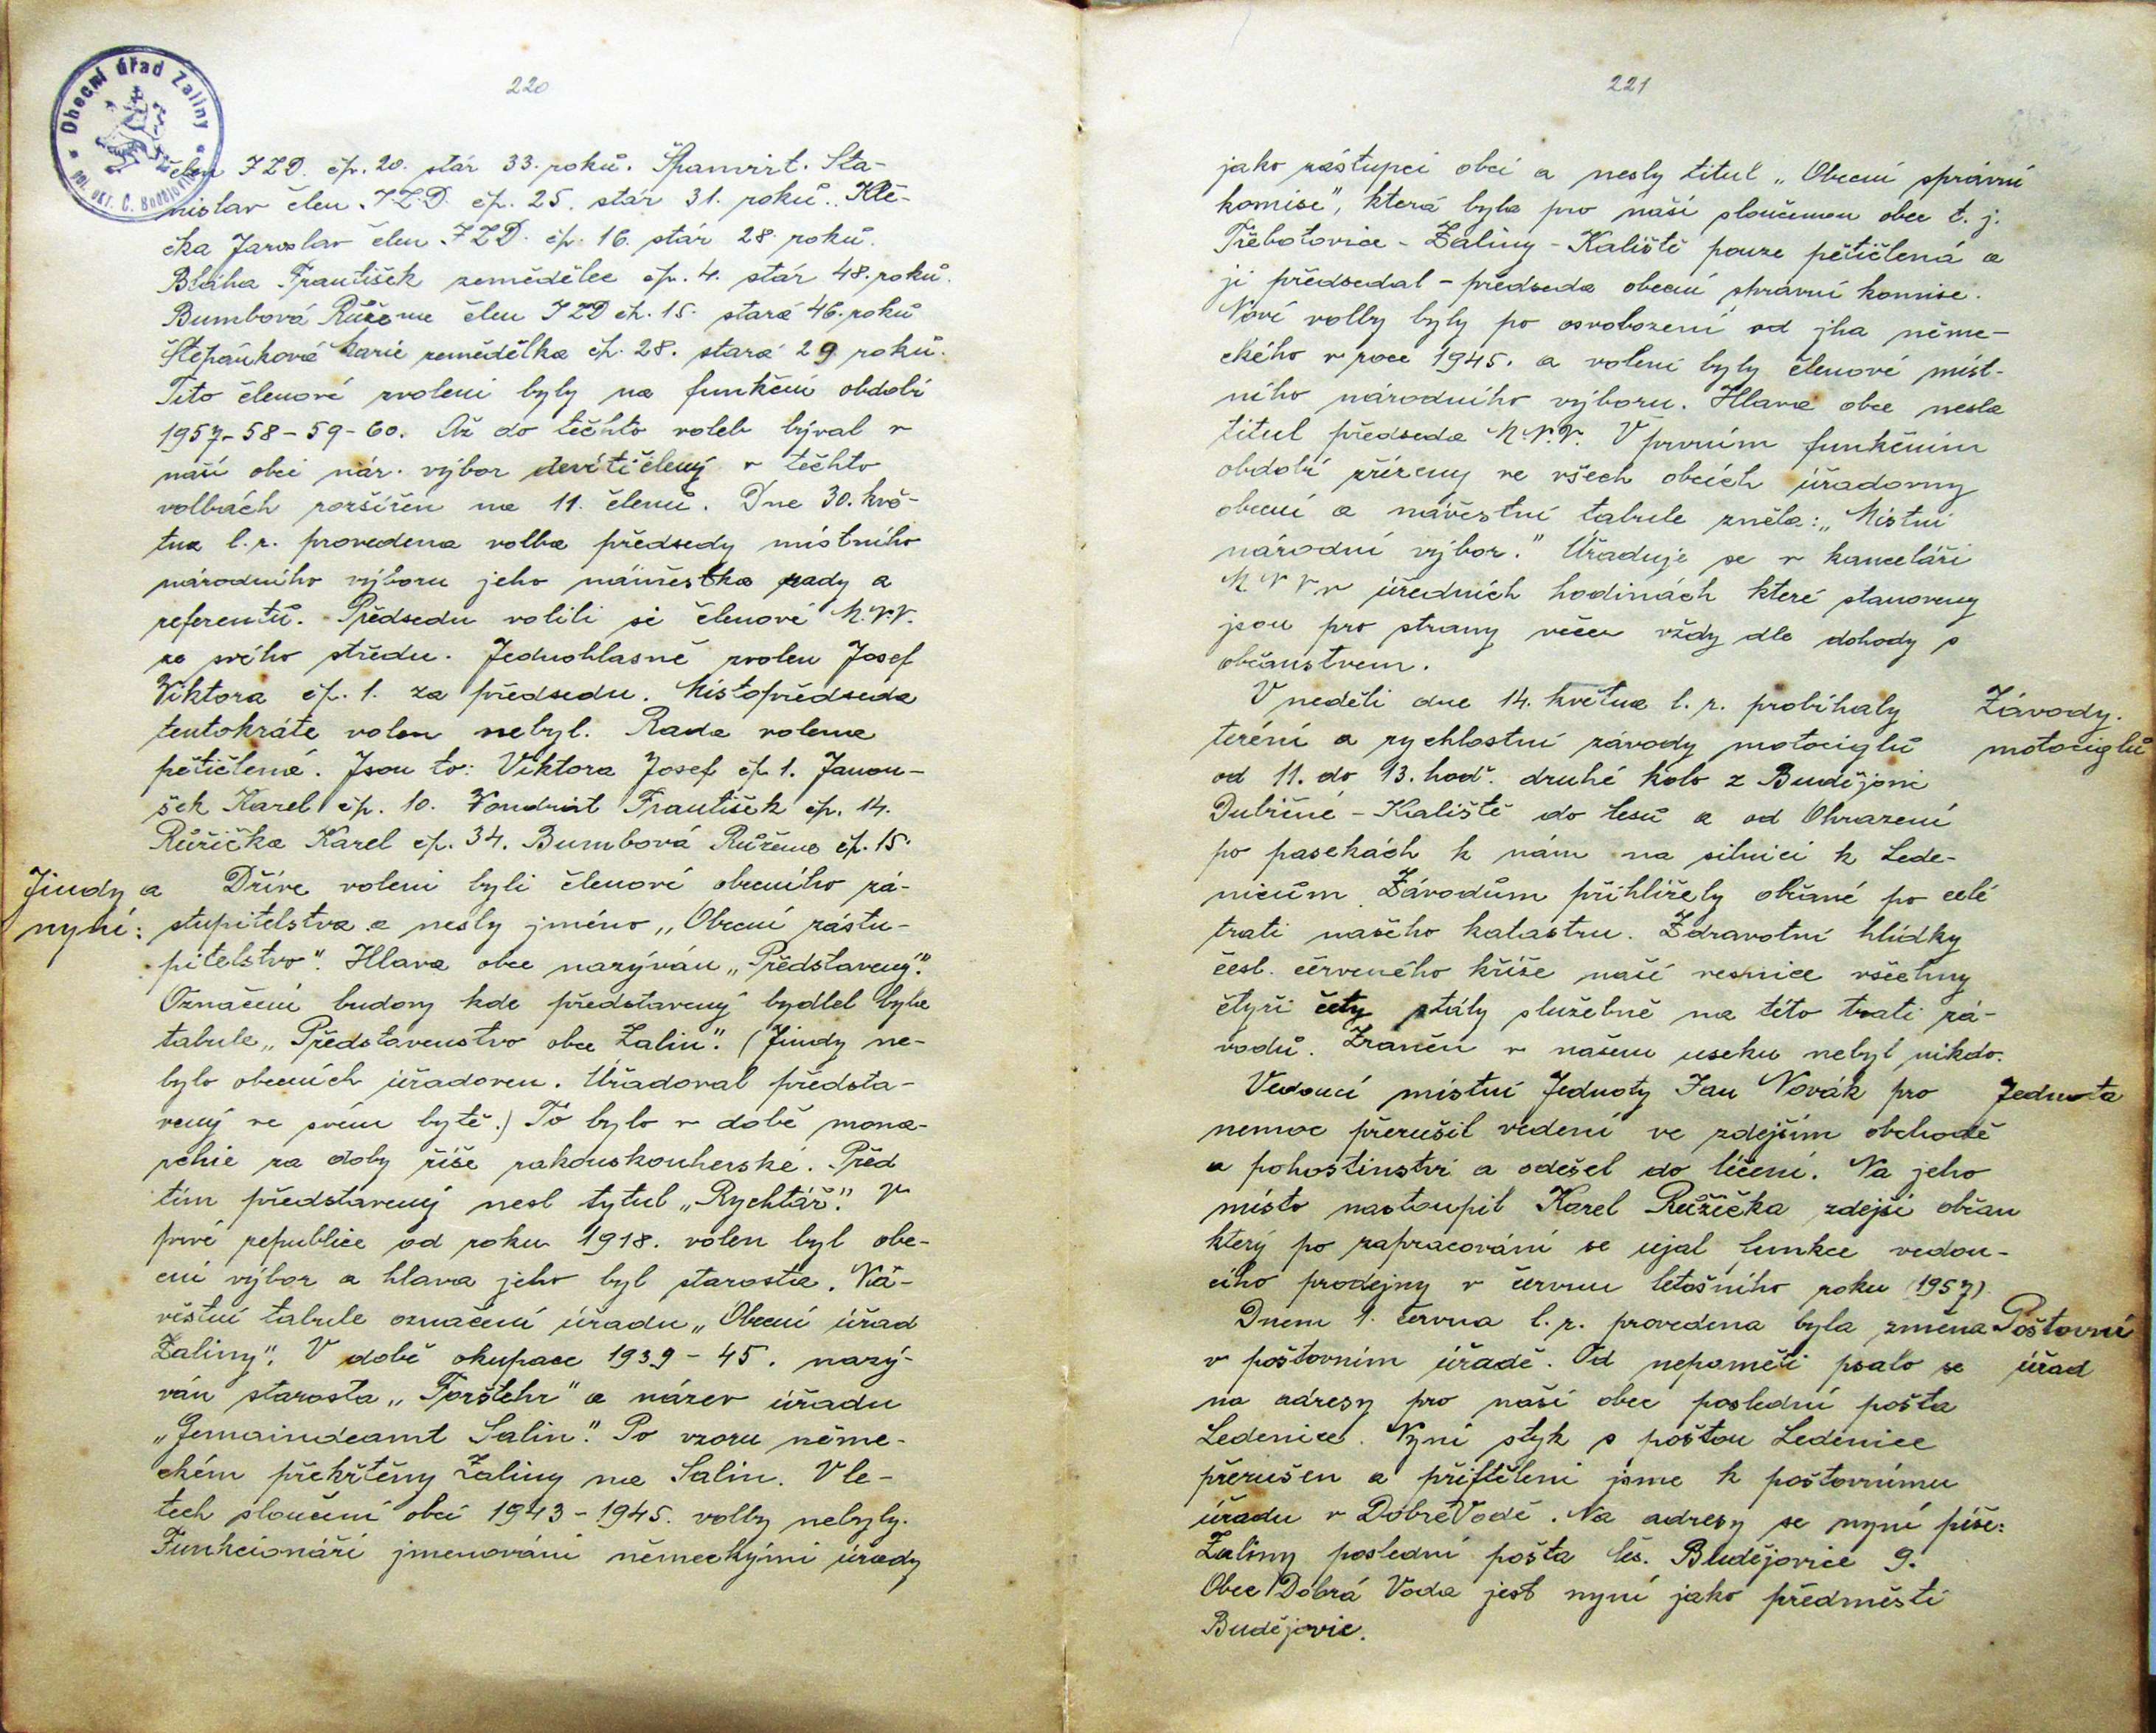 Obecní úřad Zaliny
220
člen J Z D. čp. 20. stár 33. roků. Španvirt. Sta-
nislav člen J.Z.D. čp. 25. stár 31. roků. Kle-
čka Jaroslav člen J Z D. čp. 16. stár 28 roků.
Bláha František zemědělec čp. 4. stár 48. roků.
Bumbová Růžena člen J Z D čp. 15. stará 46. roků
Štěpánková Marie zemědělka čp. 28. stará 29 roků.
Tito členové zvoleni byly na funkční období
1957-58-59-60. Až do těchto voleb býval v
naší obci nár. výbor devítičlený v těchto
volbách rozšířen na 11. členů. Dne 30. kvě-
tna l. r. provedena volba předsedy místního
národního výboru jeho náměstka rady a
referentů. Předsedu volili si členové M.N.V.
ze svého středu. Jednohlasně zvolen Josef
Viktora čp. 1. za předsedu. Místopředseda
tentokráte volen nebyl. Rada volena
pětičlená. Jsou to: Viktora Josef čp 1. Janou-
šek Karel čp. 10. Voudrát František čp. 14.
Růžička Karel čp. 34. Bumbová Růžena čp. 15.
Jindy a
nyní:
Dříve voleni byli členové obecního zá-
stupitelstva a nesly jméno „Obecní zástu-
pitelstvo". Hlava obce nazýván „Představený."
Označení budovy kde představený bydlel byla
tabule „Představenstvo obce Zalin". (Jindy ne-
bylo obecních úřadoven. Úřadoval předsta-
vený ve svém bytě.) To bylo v době mona-
rchie za doby říše rakouskouherské. Před
tím představený nesl tytul „Rychtář." V
prvé republice od roku 1918. volen byl obe-
cní výbor a hlava jeho byl starosta. Ná-
věstní tabule označení úřadu „Obecní úřad
Zaliny". V době okupace 1939-45. nazý-
ván starosta „Forštehr" a název úřadu
„Gemaindeamt Salin". Po vzoru něme-
ckém překřtěny Zaliny na Salin. V le-
tech sloučení obcí 1943-1945. volby nebyly.
Funkcionáři jmenováni německými úřady
221
jako zástupci obcí a nesly titul „Obecní správní
komise", která byla pro naší sloučenou obec t. j.
Třebotovice - Zaliny - Kaliště pouze pětičlená a
jí předsedal - předseda obecní shravní komise.
Nové volby byly po osvobození od jha něme-
ckého v roce 1945. a voleni byly členové míst-
ního národního výboru. Hlava obce nesla
titul předseda M.N.V. V prvním funkčním
období zřízeny ve všech obcích úřadovny
obecní a návěstní tabule zněla: „Místní
národní výbor." Úřaduje se v kanceláři
M N V v úředních hodinách které stanoveny
jsou pro strany večer vždy dle dohody s
občanstvem.
V neděli dne 14. května l. r. probíhaly
teréní a rychlostní závody motociglů
od 11. do 13. hod. druhé kolo z Budějovic
Dubičné - Kaliště do lesů a od Ohrazení
po pasekách k nám na silnici k Lede-
nicům. Závodům přihlížely občané po celé
trati našého katastru. Zdravotní hlídky
česl. červeného kříže naší vesnice všechny
čtyři čety stály služebně na této trati zá-
vodů. Zraněn v našem useku nebyl nikdo.
Závody.
motociglů
Vedoucí místní Jednoty Jan Novák pro
nemoc přerušil vedení ve zdejším obchodě
a pohostinství a odešel do léčení. Na jeho
místo nastoupil Karel Růžička zdejší občan
který po zapracování se ujal funkce vedou-
cího prodejny v červnu letošního roku (1957).
Jednota
Dnem 1. června l. r. provedena byla změna
v poštovním úřadě. Od nepaměti psalo se
na adresy pro naší obec poslední pošta
Ledenice. Nyní styk s poštou Ledenice
přerušen a přiftěleni jsme k poštovnímu
úřadu v Dobré Vodě. Na adresy se nyní píše:
Zaliny poslední pošta Čes. Budějovice 9.
Obec Dobrá Voda jest nyní jako předměstí
Budějovic.
Poštovní
úřad